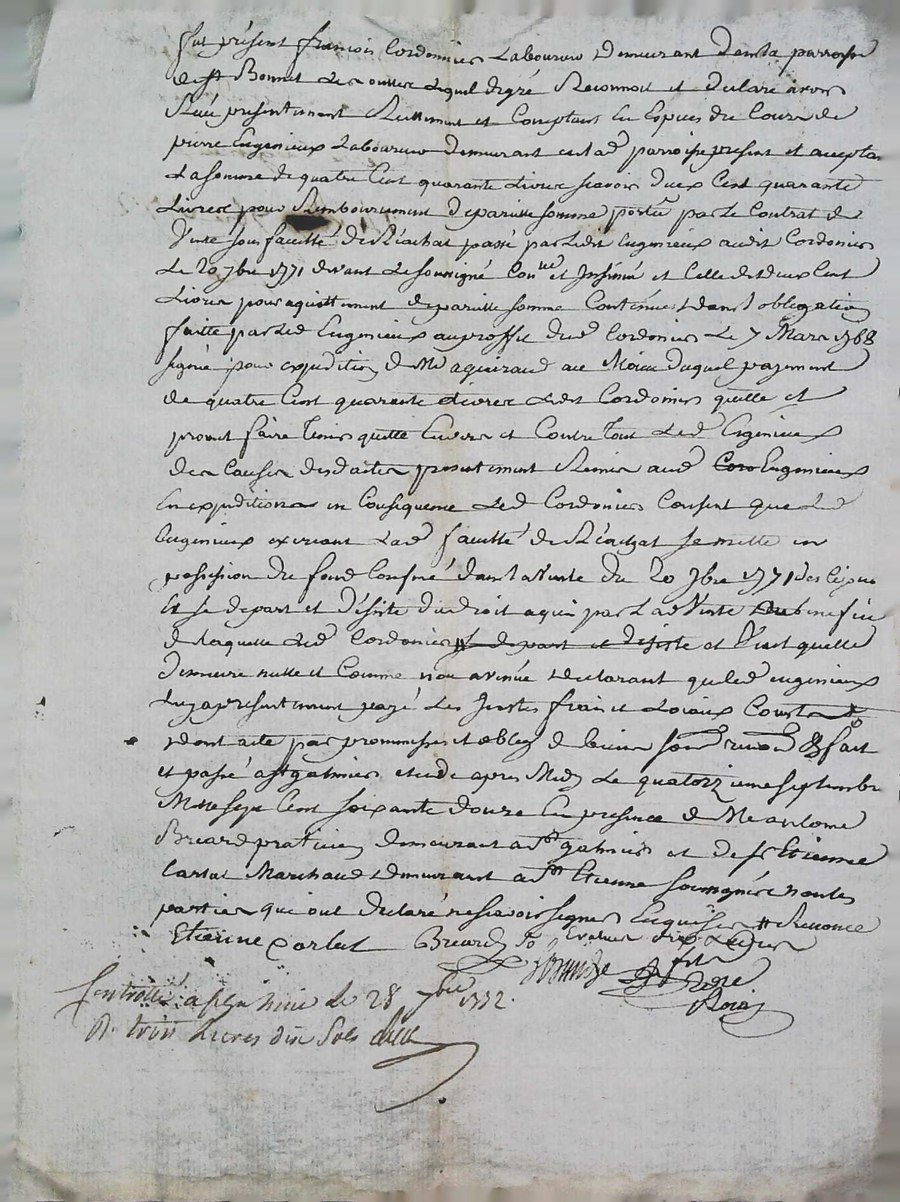 fut présent francois Cordonnier Laboureur demeurant dansla parroisse
de st Bonnet Les oulles Lequel degré Reconnoit et declare avoir
Receu presentement Reellement et Comptant En Especes du Cours de
pierre Eugenieux Laboureur demeurant enlad parroisse present et acceptan
La somme de quatre Cent quarante Livres scavoir deux Cent quarante
Livres pour Remboursement depareille somme portée par Le Contrat de
Vente sous faculté de Réachat passé par Ledit Eugenieux audit Cordonier
Le 20 7bre 1771 devant Le soussigné et Insinué et Celle de deux Cent
Livres pour aquittement depareille somme Contenue dans l obligation
faitte par Led Eugenieux auproffit dud Cordonier Le 7 Mars 1768
signée pour expedition de Me au Moien duquel payement
de quatre Cent quarante Livres Ledit Cordonier quitte et
promet faire tenir quitte Envers et Contre tous Led Eugenieux
des Causes desd actes presentement Remis aud Coro Eugenieux
En expeditions en Consequence Led Cordonier Consent que Led
Eugenieux exercant Lad faculté de Réachat se mette en
possession du fond Confiné dans la Vente du 20 7bre 1771
Et se depart et désiste du droit aquis par Lad Vente benefice
de laquelle Led Cordonier se depart et desiste et Veut quelle
demeure nulle et Comme non avenüe declarant que led eugenieux
Luy apresentement payé Les Justes frais et Loiaux Couts
dont acte par promesses et oblig de biens fait
et passé a st galmier etude apres Midy Le quatorzieme septembre
Mille sept Cent soixante douze En presence de Me antoine
Bréard praticien demeurant a st galmier et de sr Etienne
Carlat Marchand demeurant a st Etienne soussignés non les
parties qui ont declaré ne scavoir signer Enquises
Etienne Carlat Breard
Controllé a st galmier le 28 7bre 1772.
R. trois Livres dix sols